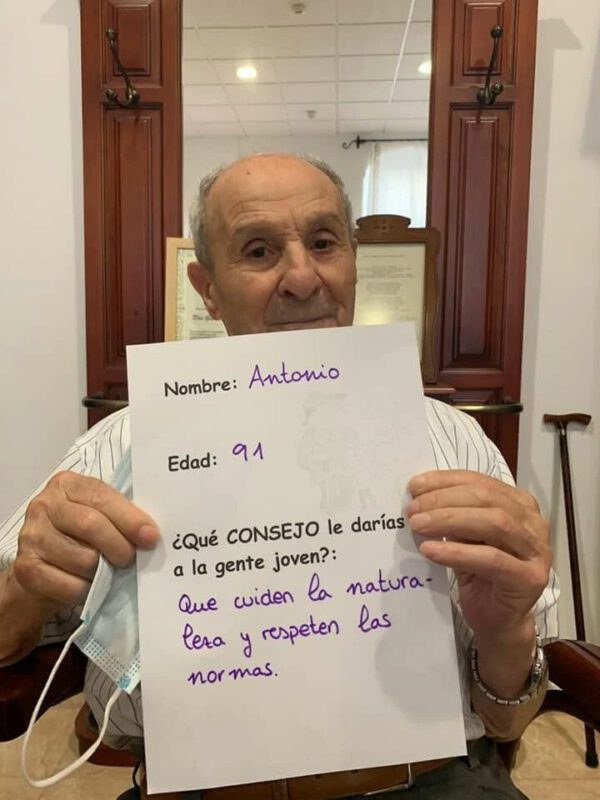 Nombre: Antonio
Edad: 91
¿Qué CONSEJO le darías
a la gente joven?:
Que cuiden la natura-
leza y respeten las
normas.